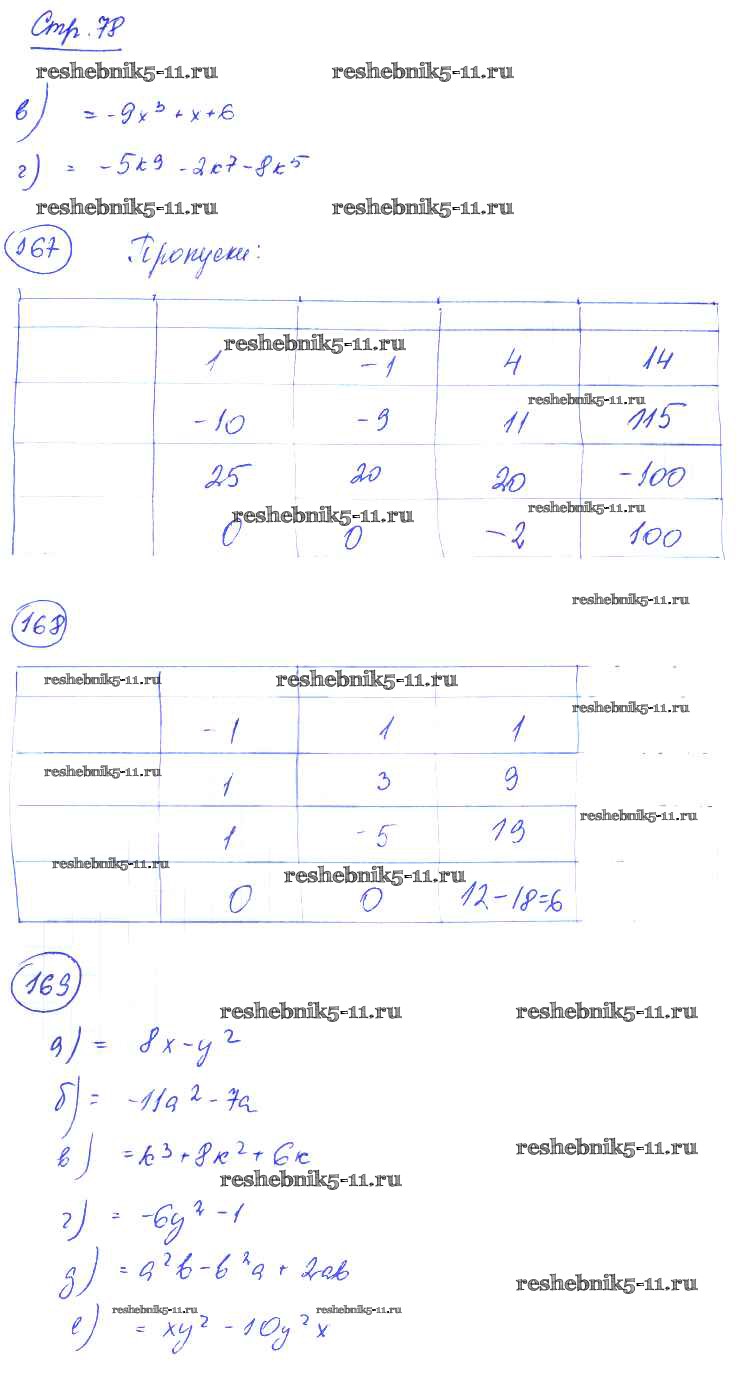 Стр. 78
reshebnik5-11.ru reshebnik5-11.ru
в) = -9x³ + x + 6
г) = -5к9 - 2к7 - 8к5
reshebnik5-11.ru reshebnik5-11.ru
167 Пропуски:
reshebnik5-11.ru
1 -1 4 14
reshebnik5-11.ru
-10 -9 11 115
25 20 20 -100
reshebnik5-11.ru reshebnik5-11.ru
0 0 -2 100
reshebnik5-11.ru
168
reshebnik5-11.ru reshebnik5-11.ru
reshebnik5-11.ru
-1 1 1
reshebnik5-11.ru
1 3 9
reshebnik5-11.ru
1 -5 19
reshebnik5-11.ru reshebnik5-11.ru
0 0 12-18=6
169
reshebnik5-11.ru reshebnik5-11.ru
а) = 8x - y²
б) = -11a² - 7a
в) = к³ + 8к² + 6к
reshebnik5-11.ru
reshebnik5-11.ru
г) = -6y² - 1
д) = a²b - b²a + 2ab
reshebnik5-11.ru
reshebnik5-11.ru reshebnik5-11.ru
е) = xy² - 10y²x